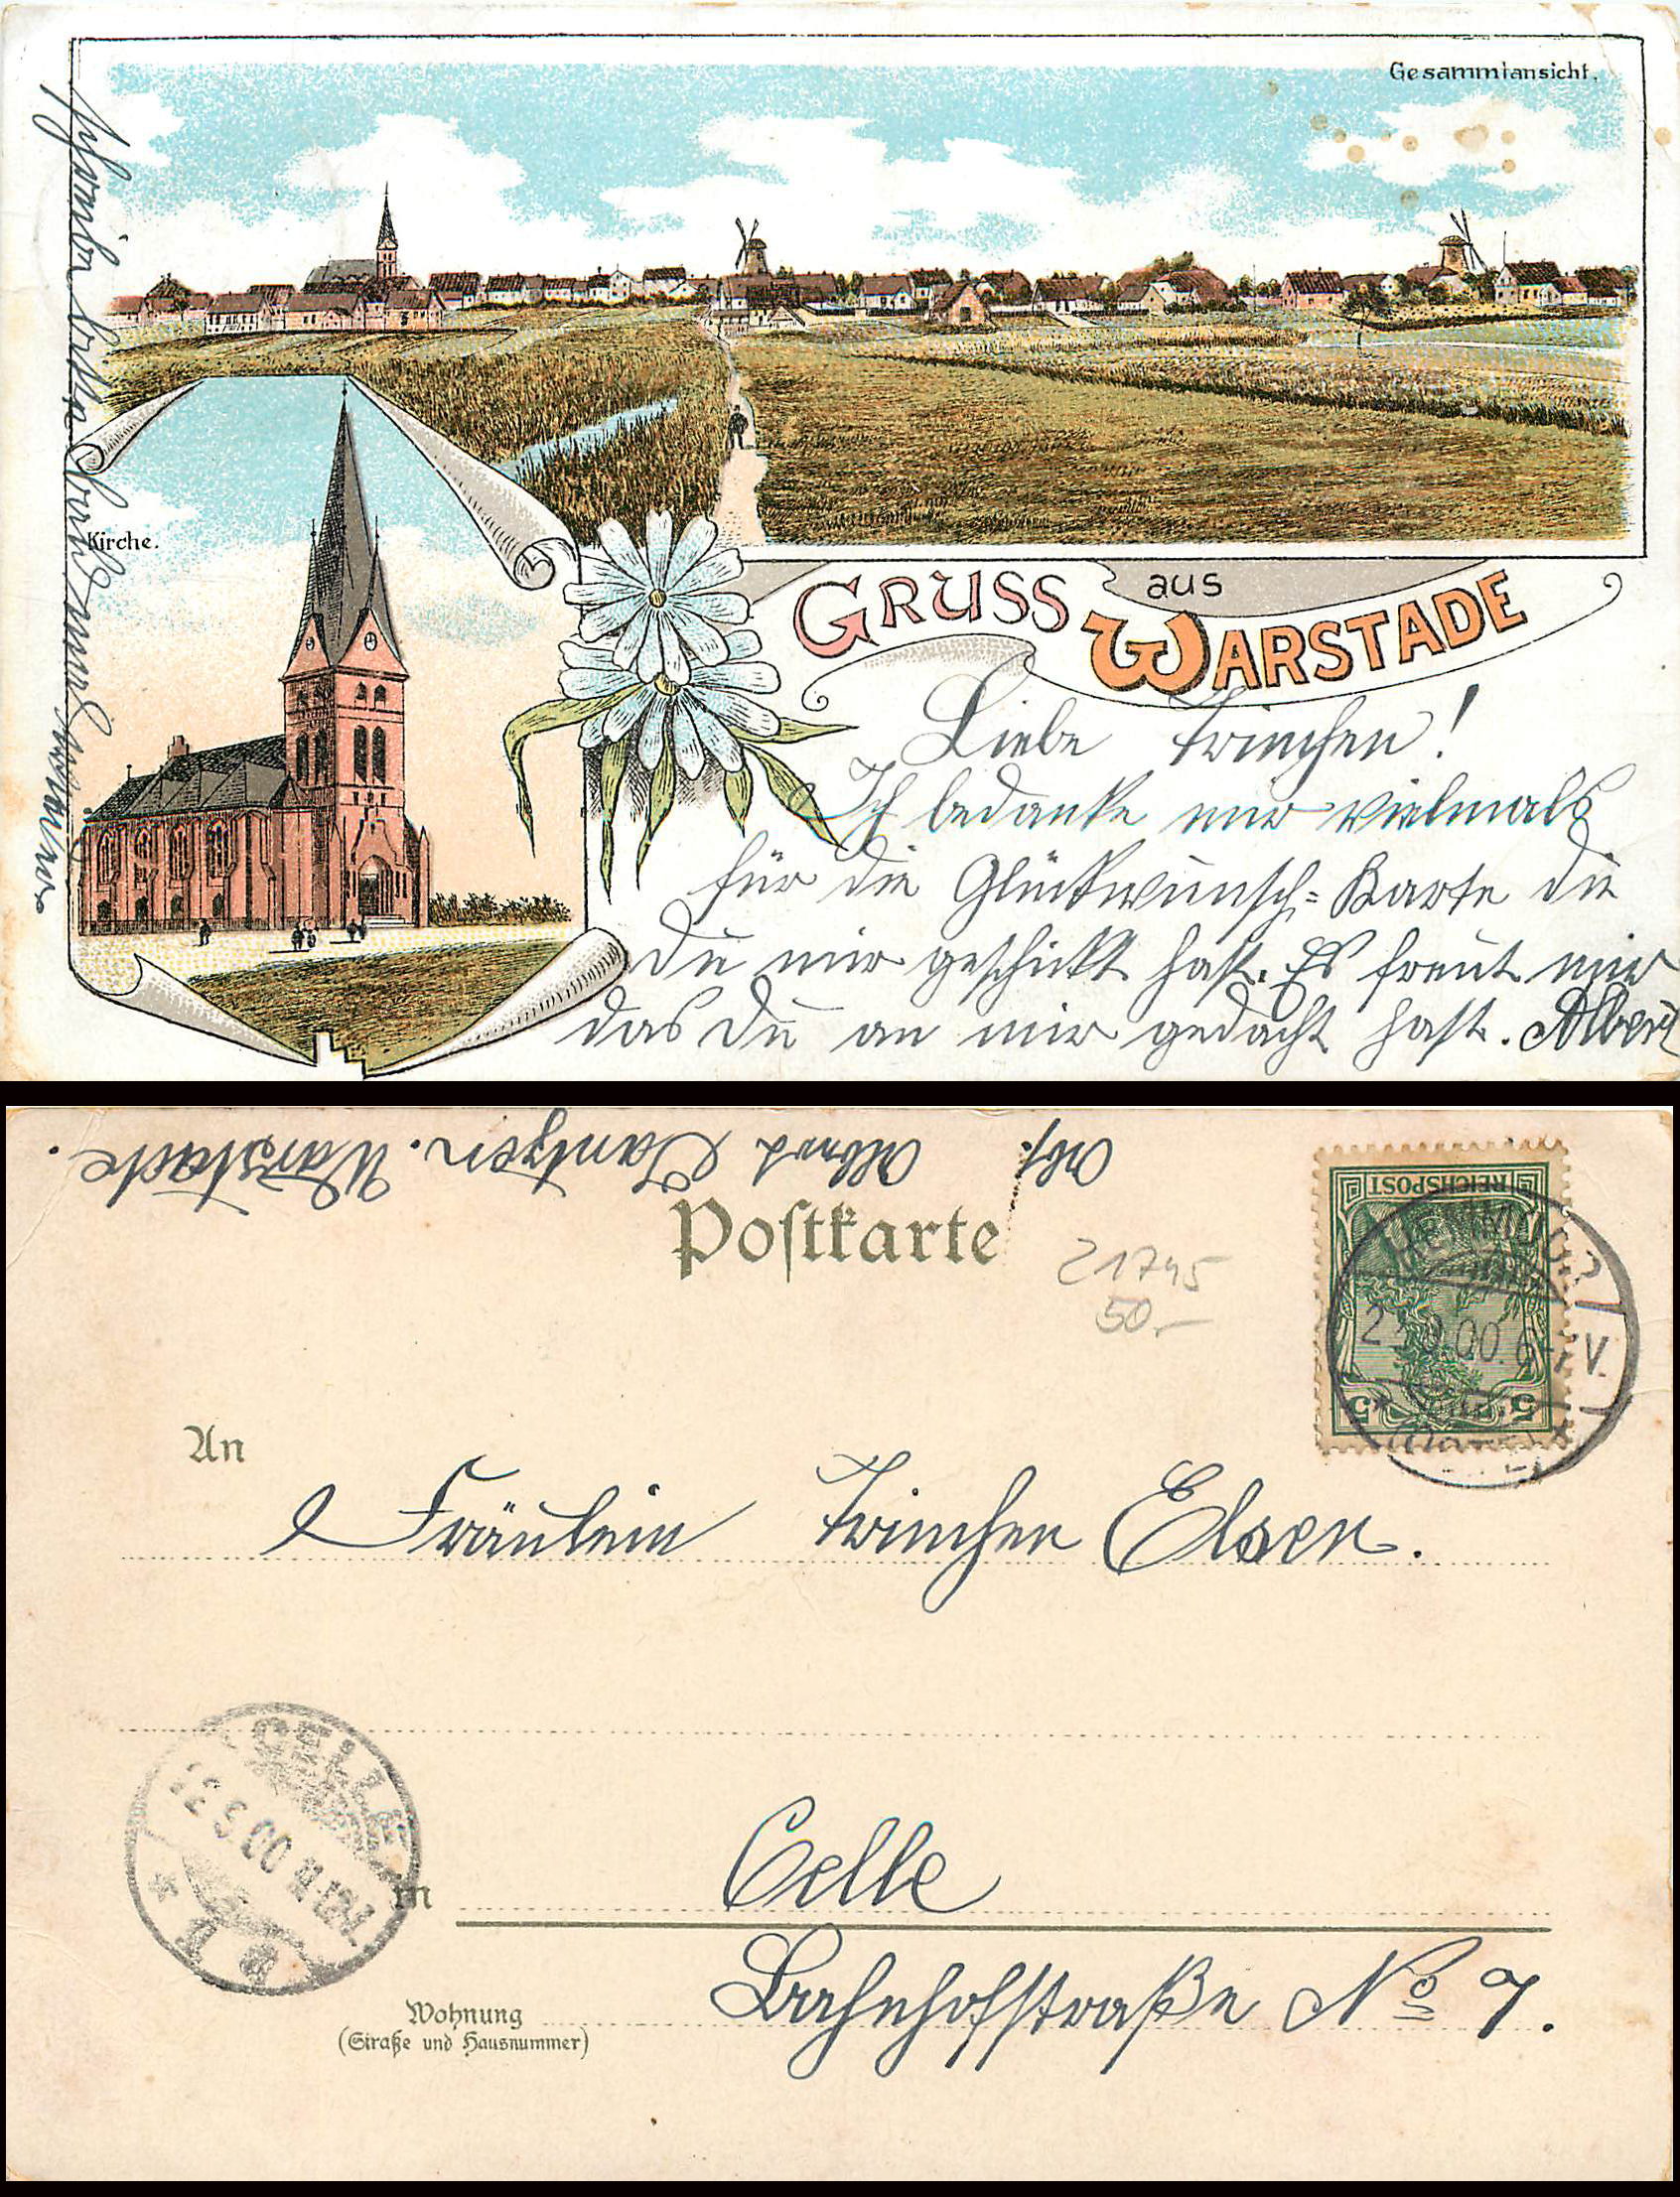 Gesammtansicht.
Kirche.
GRUSS aus WARSTADE
Liebe Trinchen!
Ich bedanke mir vielmals
für die Glückwunsch=Karte die
Du mir geschickt hast. Es freut mir
das Du an mir gedacht hast. Albert
Schreibe bitte
Abs. Albert Jantzen. Warstade.
Postkarte
21745
50.-
REICHSPOST
5 5
HEMMOOR
.00. 6-7 V.
An
Fräulein Trinchen Elsen.
CELLE
in Celle
Wohnung
(Straße und Hausnummer)
Bahnhofstraße No 7.